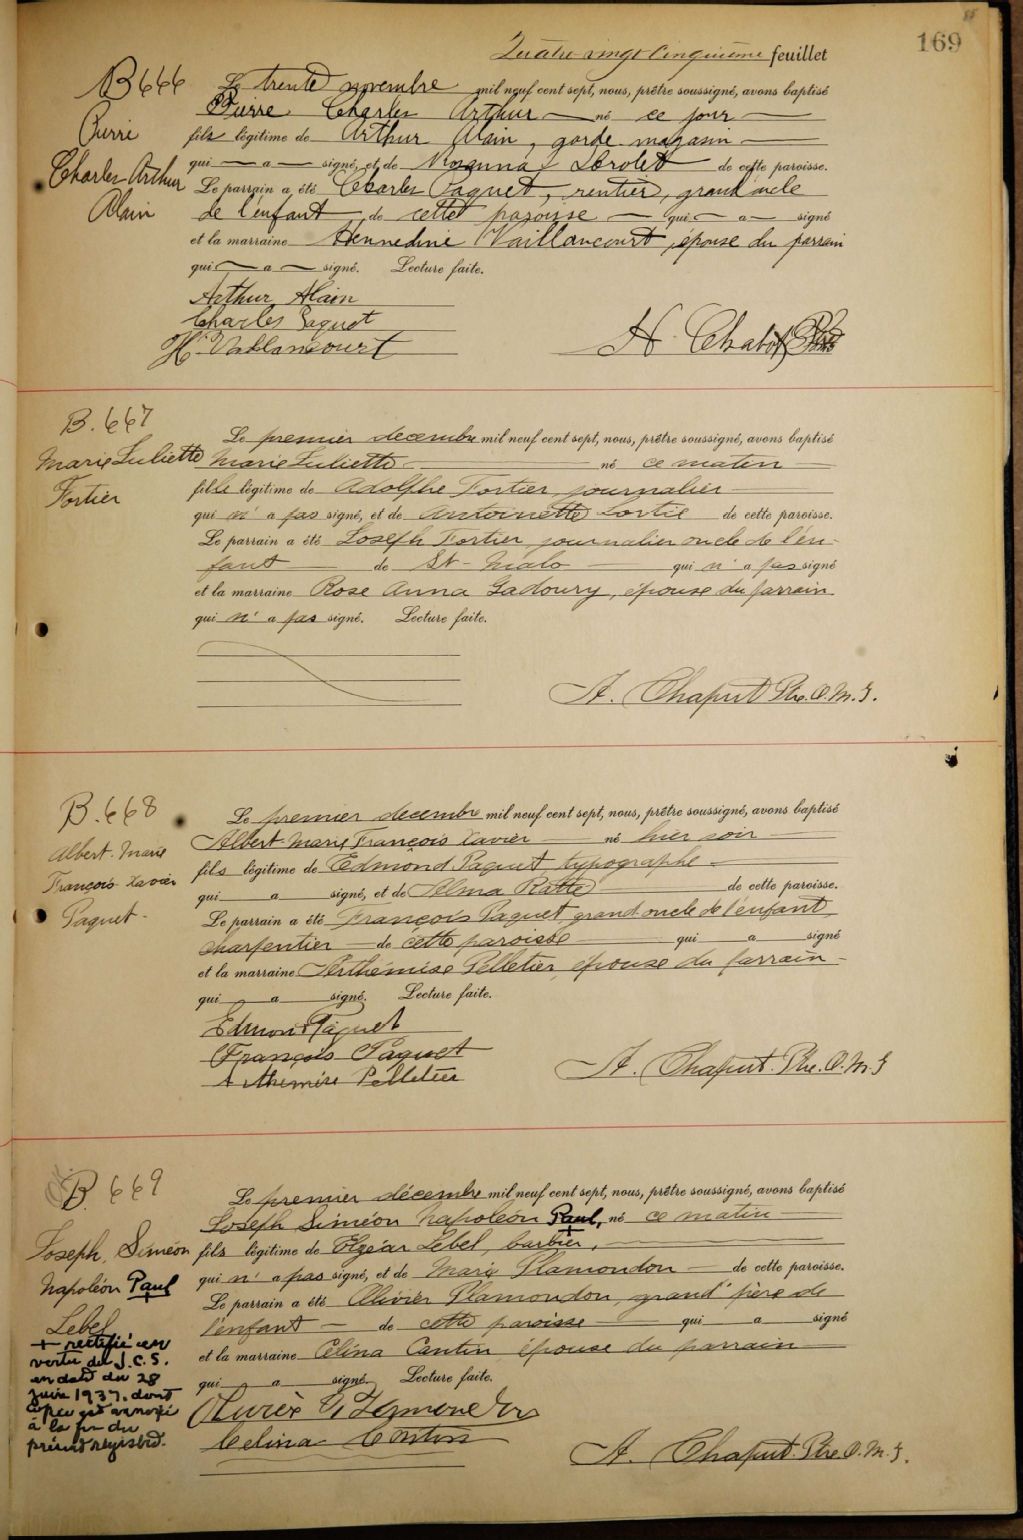 85
Quatre-vingt Cinquième feuillet
169
B 666
Pierre
Charles-Arthur
Alain
Le trente novembre mil neuf cent sept, nous, prêtre soussigné, avons baptisé
Pierre Charles Arthur né ce jour
fils légitime de Arthur Alain, garde-magasin
qui a signé, et de Rosanna de cette paroisse.
Le parrain a été Charles Paquet, rentier, grand oncle
de l'enfant, de cette paroisse qui a signé
et la marraine Vaillancourt, épouse du parrain
qui a signé. Lecture faite.
Arthur Alain
Charles Paquet
H. Vaillancourt
H. Chabot Ptre
B. 667
Marie Juliette
Fortier
Le premier decembre mil neuf cent sept, nous, prêtre soussigné, avons baptisé
Marie Juliette né ce matin
fille légitime de Adolphe Fortier, journalier
qui n'a pas signé, et de Antoinette Lortie de cette paroisse.
Le parrain a été Joseph Fortier journalier oncle de l'en-
fant de St-Malo qui n'a pas signé
et la marraine Rose Anna Gadoury, épouse du parrain
qui n'a pas signé. Lecture faite.
A. Chaput Ptre. O.M.I.
B. 668
Albert-Marie
François-Xavier
Paquet-
Le premier decembre mil neuf cent sept, nous, prêtre soussigné, avons baptisé
Albert-Marie François Xavier né hier soir
fils légitime de Edmond Paquet, typographe
qui a signé, et de Alma Ratté de cette paroisse.
Le parrain a été François Paquet, grand oncle de l'enfant,
charpentier de cette paroisse qui a signé
et la marraine Arthémise Pelletier, épouse du parrain-
qui a signé. Lecture faite.
Edmond Paquet
François Paquet
Arthémise Pelletier
A. Chaput. Ptre. O.M.I
B. 669
Joseph, Siméon
Napoléon Paul
Lebel
+ rectifié en
vertu du J.C.S.
en date du 28
juin 1937, dont
copie est annexée
à la fin du
présent registre.
Le premier décembre mil neuf cent sept, nous, prêtre soussigné, avons baptisé
Joseph Siméon Napoléon Paul, né ce matin
+
fils légitime de Elzéar Lebel, barbier,
qui n'a pas signé, et de Marie Plamondon de cette paroisse.
Le parrain a été Olivier Plamondon, grand'père de
l'enfant de cette paroisse qui a signé
et la marraine Célina Cantin, épouse du parrain
qui a signé. Lecture faite.
Olivier Plamondon
Celina Cantin
A. Chaput. Ptre. O.M.I.